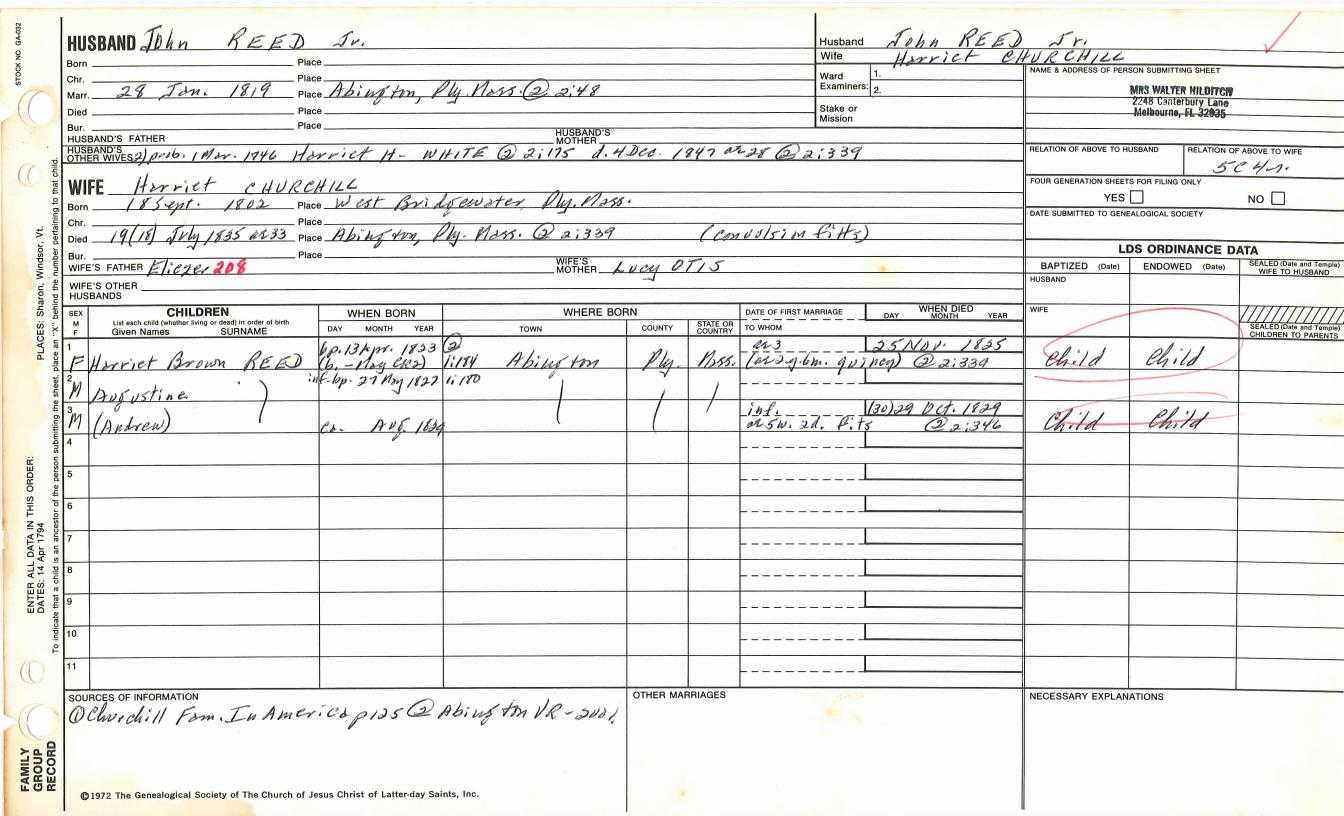 STOCK NO GA-032
HUSBAND John REED Jr.
Born Place
Chr. Place
Marr. 28 Jan. 1819 Place Abington, Ply. Mass. ② 2:48
Died Place
Bur. Place
HUSBAND'S FATHER HUSBAND'S MOTHER
HUSBAND'S OTHER WIVES 2) prob. 1 Mar. 1846 Harriet H- WHITE ② 2:175 d. 4 Dec. 1847 ae 28 ② 2:339
WIFE Harriet CHURCHILL
Born 18 Sept. 1802 Place West Bridgewater, Ply. Mass.
Chr. Place
Died 19(18) July 1835 ae 33 Place Abington, Ply. Mass. ② 2:339 (convulsion fitts)
Bur. Place
WIFE'S FATHER Eliezer 208 WIFE'S MOTHER Lucy OTIS
WIFE'S OTHER HUSBANDS
Husband John REED Jr.
Wife Harriet CHURCHILL
Ward Examiners: 1. 2.
Stake or Mission
NAME & ADDRESS OF PERSON SUBMITTING SHEET
MRS WALTER HILDITCH
2248 Canterbury Lane
Melbourne, FL 32935
RELATION OF ABOVE TO HUSBAND RELATION OF ABOVE TO WIFE
5C4r.
FOUR GENERATION SHEETS FOR FILING ONLY
YES NO
DATE SUBMITTED TO GENEALOGICAL SOCIETY
LDS ORDINANCE DATA
BAPTIZED (Date) ENDOWED (Date) SEALED (Date and Temple) WIFE TO HUSBAND
HUSBAND
WIFE
SEALED (Date and Temple) CHILDREN TO PARENTS
SEX M F CHILDREN WHEN BORN WHERE BORN DATE OF FIRST MARRIAGE WHEN DIED
List each child (whether living or dead) in order of birth
Given Names SURNAME DAY MONTH YEAR TOWN COUNTY STATE OR COUNTRY TO WHOM DAY MONTH YEAR
1 bp. 13 Apr. 1823 ② ae 3 25 Nov. 1825
F Harriet Brown REED (b. – May CR2) 1:184 Abington Ply. Mass. (ae 2y. 6m. quincy) ② 2:339 Child Child
2 M Augustine inf. bp. 27 May 1827 1:180
3 M (Andrew) ca. Aug. 1829 inf. (30)29 Oct. 1829
ae 5w. 2d. fits ② 2:346 Child Child
4
5
6
7
8
9
10
11
SOURCES OF INFORMATION OTHER MARRIAGES NECESSARY EXPLANATIONS
① Churchill Fam. In America p125 ② Abington VR –
©1972 The Genealogical Society of The Church of Jesus Christ of Latter-day Saints, Inc.
FAMILY GROUP RECORD
ENTER ALL DATA IN THIS ORDER:
DATES: 14 Apr 1794
PLACES: Sharon, Windsor, Vt.
To indicate that a child is an ancestor of the person submitting the sheet, place an "X" behind the number pertaining to that child.